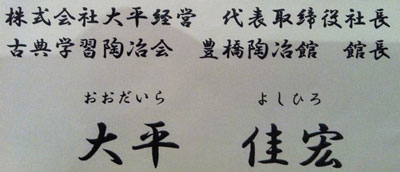 株式会社大平経営　代表取締役社長
古典学習陶冶会　豊橋陶冶館　館長
おおだいら　よしひろ
大平　佳宏